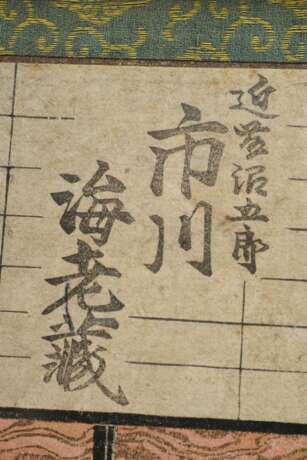 近藤沼五郎
市川
海老蔵